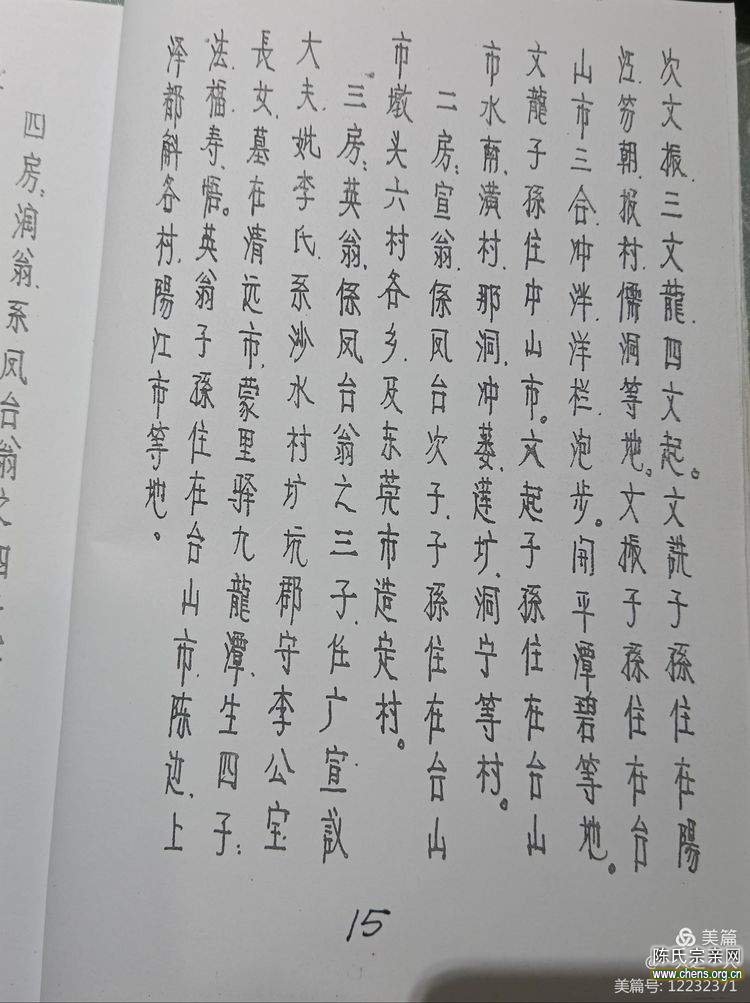 次文振、三文龍、四文起。文詵子孫住在陽
江笏朝、报村、儒洞等地。文振子孫住在台
山市三合冲泮、洋栏、泡步。開平潭碧等地。
文龍子孫住中山市。文起子孫住在台山
市水南、潢村、那洞、冲蒌、莲圢、洞宁等村。
二房：宣翁、係凤台次子、子孫住在台山
市墩头六村各乡、及东莞市造定村。
三房：英翁、係凤台翁之三子、任广宣议
大夫、妣李氏、系沙水村圢坑郡守李公宝
長女、墓在清远市、蒙里驿九龍潭、生四子：
法、福、寿、悟。英翁子孫住在台山市、陈边、上
泽都斛各村、陽江市等地。
15
四房：润翁、系凤台翁之四
美篇
陈氏宗亲网
www.chens.org.cn
美篇号: 12232371